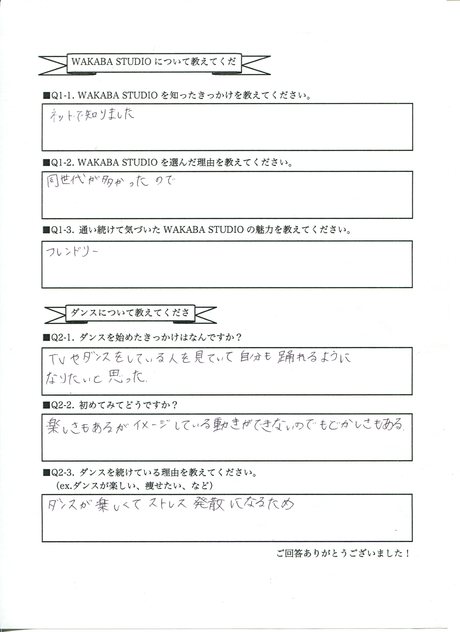 WAKABA STUDIO について教えてくだ
■Q1-1. WAKABA STUDIO を知ったきっかけを教えてください。
ネットで知りました
■Q1-2. WAKABA STUDIO を選んだ理由を教えてください。
同世代が多かったので
■Q1-3. 通い続けて気づいた WAKABA STUDIO の魅力を教えてください。
フレンドリー
ダンスについて教えてくださ
■Q2-1. ダンスを始めたきっかけはなんですか？
TVやダンスをしている人を見ていて自分も踊れるように
なりたいと思った
■Q2-2. 初めてみてどうですか？
楽しさもあるがイメージしている動きができないのでもどかしさもある
■Q2-3. ダンスを続けている理由を教えてください。
（ex.ダンスが楽しい、痩せたい、など）
ダンスが楽しくてストレス発散になるため
ご回答ありがとうございました！